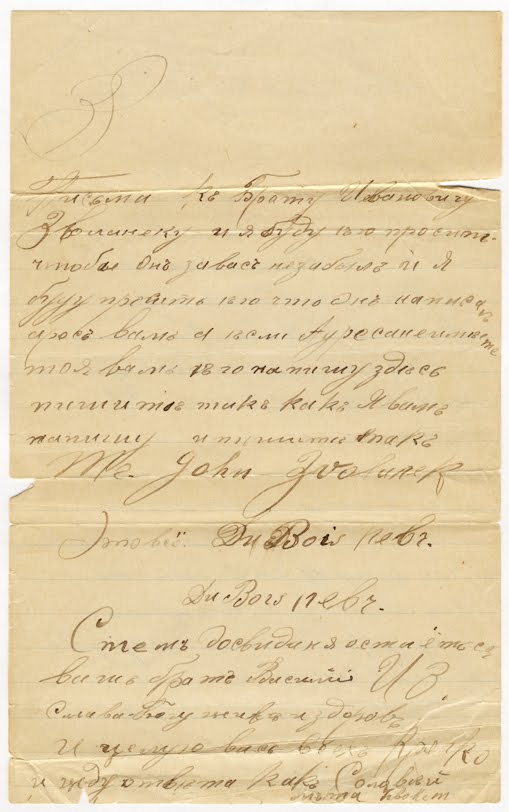 Письми къ Брату Ивановичу
Зволанеку и я буду ыво просить
чтобы Онъ завасъ незабылъ и Я
буду прасить ыво что Онъ написалъ
вамъ а ыесли Адресанеимыете
тоя вамъ ыво напишу здысь
пишитъ такъ какъ Я вамъ
напишу и пишити такъ
Mr. John Zvolanek
Этовсё. Du Bois
Du Bois
Стемъ досвиданя остаётьса
вашъ братъ Василий И З.
Слава Богу живъ и здоровъ
И цылую васъ
и жду отвыта какъ Соловый
лыта